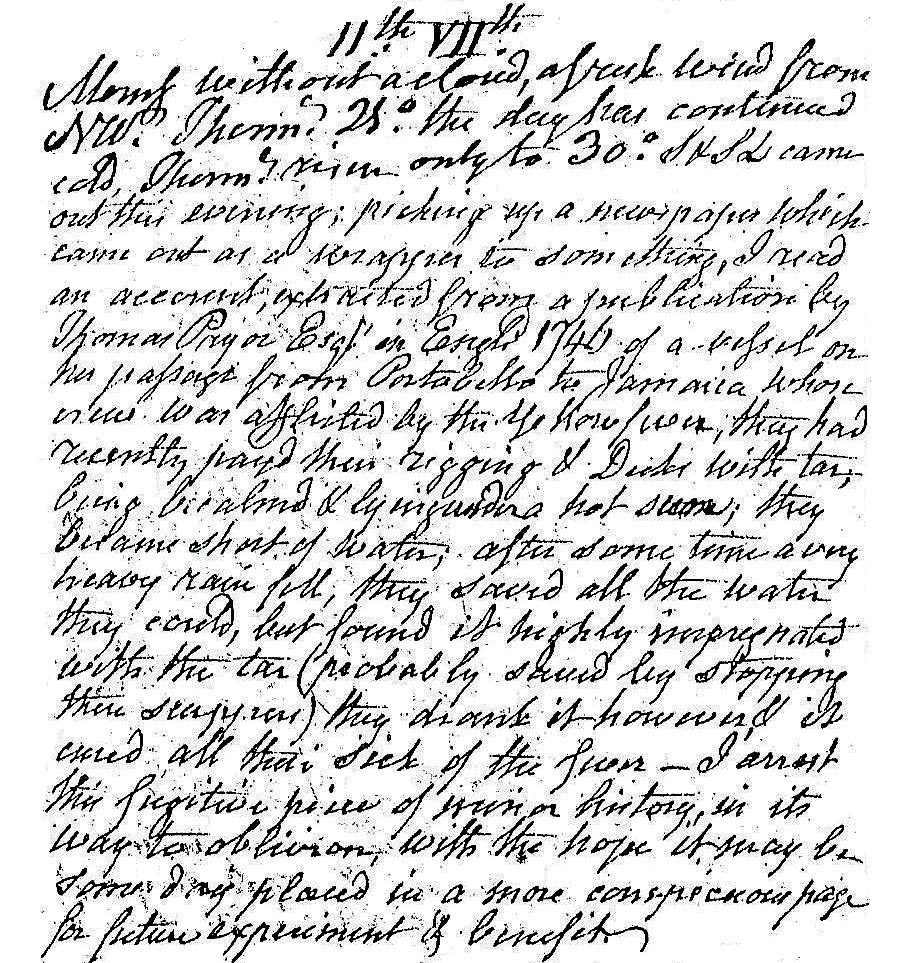 11th VIIth
Morng without a cloud, a fresh wind from
NW. Thermr 28° the day has continued
cold, Thermr risen only to 30° S & SL came
out this evening; picking up a newspaper which
came out as a wrapper to something, I read
an account, extracted from a publication by
Thomas Pryor Esqr in Engld 1746 of a vessel on
her passage from Portabello to Jamaica whose
crew was afflicted by the Yellow fever, they had
recently payd their rigging & Decks with tar,
being becalmd & lying under a hot sun; they
became short of water; after some time a very
heavy rain fell, they saved all the water
they could, but found it highly impregnated
with the tar (probably saved by stopping
their scuppers) they drank it however & it
cured all their sick of the fever – I arrest
this fugitive piece of minor history, in its
way to oblivion, with the hope it may be
some day placed in a more conspicuous page
for future experiment & benefit.